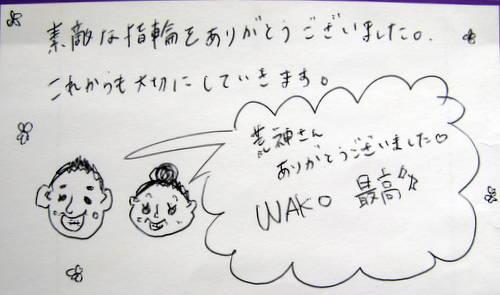 素敵な指輪をありがとうございました。
これからも大切にしていきます。
荒神さん
ありがとうございました♡
WAKO 最高!!